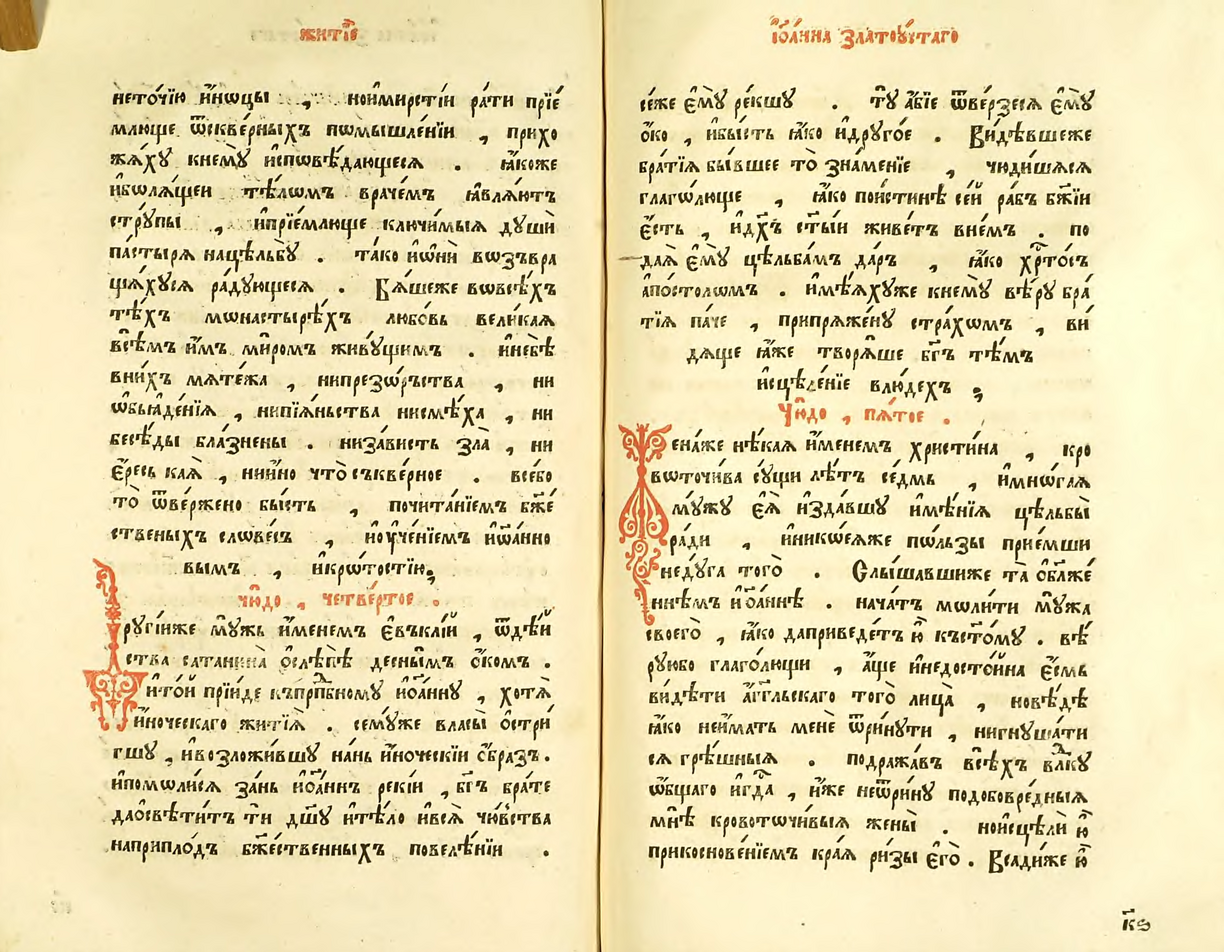 житїе
неточїю и҆́нѡцы , нѡими́рстїи ра́ти прїе́
млюще ѿскве́рныхъ пѡмышле́нїи , прихо
жа́хꙋ кнемꙋ̀ и҆спѡвѣ́дающесѧ . ꙗ҆́коже
и҆бѡлѧ́щеи тѣ́лѡмъ враче́мъ ꙗ҆влѧ́ютъ
стрꙋ́пы , и҆прїе́млюще ключи́мыѧ дꙋшѝ
па́стырѧ нацѣльбꙋ̀ . та́ко и҆ѡ҆нѝ вѡзъвра
ща́хꙋсѧ ра́дꙋющесѧ . Бѧ́шеже вѡвсѣ́хъ
тѣ́хъ мѡнастырѣ́хъ любо́вь вели́каѧ
всѣ́мъ и҆́мъ ми́ромъ живꙋ́щимъ . и҆небѣ̀
вни́хъ мѧте́жа , нипрезѡ́рьства , ни
ѡ҆бьꙗде́нїѧ , нипїѧ́ньства нисмѣ́ха , ни
бесѣ́ды бла́знены . низа́висть зла̀ , ни
є҆́ресь каѧ̀ , нии҆́но что̀ съкве́рное . всѐбо
то̀ ѿве́ржено бы́сть , почита́нїемъ бж҃е́
ственыхъ слѡве́съ , и҆ꙋ҆че́нїемъ и҆ѡ҆а́нно
вымъ , и҆кро́тостїю ,
чю́до , четве́ртое .
Дрꙋгі́иже мꙋ́жь и҆́менемъ є҆въклі́й , ѿдѣ́и
ства сатанина̀ ѡ҆слѣ́пѣ десны́мъ о҆́комъ .
и҆то́й прїи́де къпрпⷣбномꙋ и҆ѡа́ннꙋ , хотѧ̀
и҆́ноческаго житїѧ̀ . семꙋ́же власы̀ ѻ҆стри́
гшꙋ , и҆возложи́вшꙋ нань и҆́ноческїи ѻ҆́бразъ .
и҆помѡли́сѧ за́нь и҆ѡа́ннъ рекі́и , бг҃ъ бра́те
даѻсвѣти́тъ ти дш҃ꙋ и҆тѣ́ло и҆всѧ̀ чю́вства
наприпло́дъ бж҃е́ственныхъ повелѣ́нїи .
і҆ѡа́нна златоꙋ́стаго
се́же є҆мꙋ̀ ре́кшꙋ . тꙋ̀ а҆́бїе ѿве́рзесѧ є҆мꙋ̀
ѻ҆́ко , и҆бы́сть ꙗ҆́ко и҆дрꙋго́е . Ви́дѣвшеже
бра́тїѧ бы́вшее то̀ зна́менїе , чюди́шѧсѧ
глаго́люще , ꙗ҆́ко пои́стинѣ се́й ра́бъ бж҃їи
є҆́сть , и҆дх҃ъ ст҃ы́и живе́тъ вне́мъ . по
даѧ̀ є҆мꙋ̀ цѣльба́мъ да́ръ , ꙗ҆́ко хрⷭ҇то́съ
а҆по́столѡмъ . и҆мѣ́ѧхꙋже кнемꙋ̀ вѣ́рꙋ бра́
тїѧ па́че , припрѧже́нꙋ стра́хѡмъ , ви́
дѧще ꙗ҆́же творѧ́ше бг҃ъ тѣ́мъ
и҆сцѣле́нїе влю́дехъ ;
Чю́до , пѧ́тое .
Жена́же нѣ́каѧ и҆́менемъ христи́на , кро
вѡточи́ва сꙋ́щи лѣ́тъ се́дмь , и҆мнѡ́гаѧ
мꙋ́жꙋ є҆ѧ̀ и҆здавшꙋ̀ и҆мѣ́нїѧ цѣльбы̀
ра́ди , и҆никѡеѧ́же пѡ́льзы прие́мши
недꙋ́га того̀ . Слы́шавшиже та̀ ѻ҆блаже́
ннѣмъ и҆ѡа́ннѣ . нача́тъ мѡли́ти мꙋ́жа
своего̀ , ꙗ҆́ко даприведе́тъ ю҆̀ късто́мꙋ . вѣ́
рꙋюбо глаго́лющи , а҆́ще и҆недосто́йна є҆́смь
ви́дѣти а҆́гг҃льскаго того̀ лица̀ , новѣ́дѣ
ꙗ҆́ко неи҆́мать менѐ ѿри́нꙋти , нигнꙋша́ти
сѧ грѣ́шныѧ . подража́въ всѣ́хъ влⷣкꙋ
ѻ҆́бщаго и҆гдⷭ҇а , и҆́же неѿри́нꙋ подобовре́дныѧ
мнѣ̀ кровотѡчи́выѧ жены̀ . нои҆сцѣлѝ ю҆̀
прикоснове́нїемъ кра́ѧ ри́зы є҆го̀ . Всади́же ю҆̀
к҃ѕ